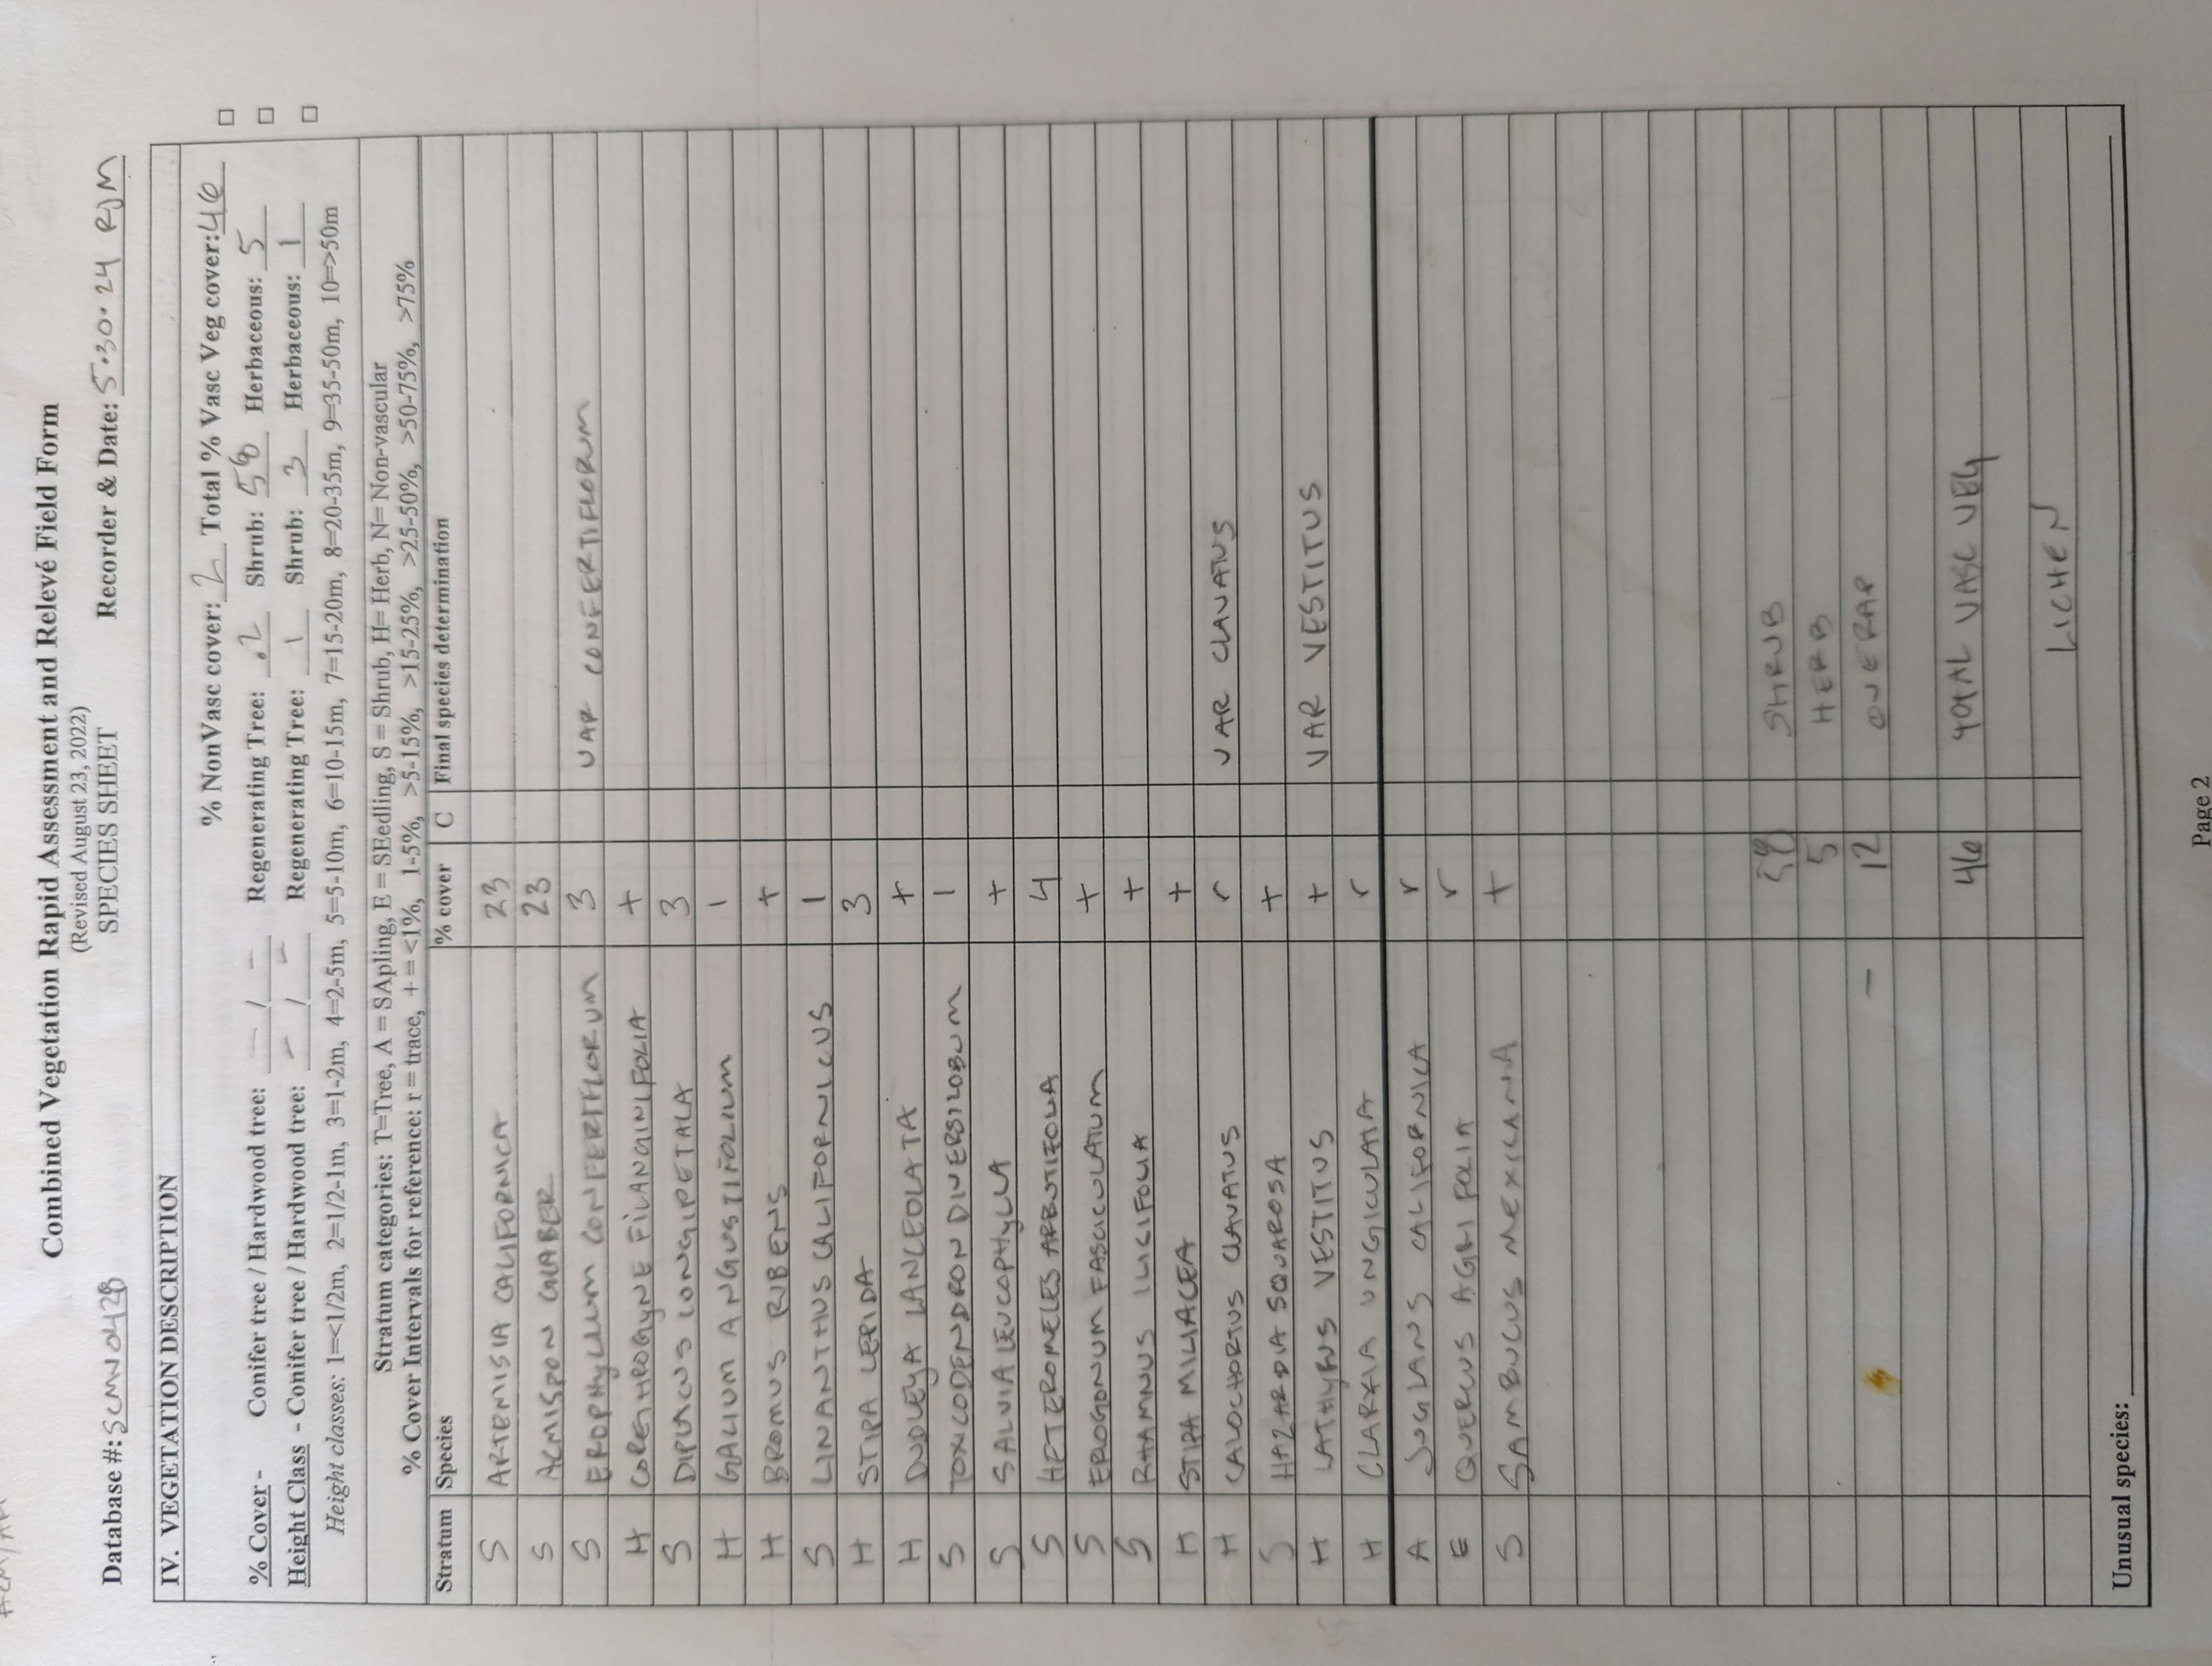 Combined Vegetation Rapid Assessment and Relevé Field Form
(Revised August 23, 2022)
SPECIES SHEET
Database #: SCMN0428 Recorder & Date: 5.30.24 RJM
IV. VEGETATION DESCRIPTION
% NonVasc cover: 2 Total % Vasc Veg cover: 46 □
% Cover - Conifer tree / Hardwood tree: - / - Regenerating Tree: .2 Shrub: Herbaceous: 5 □
Height Class - Conifer tree / Hardwood tree: - / - Regenerating Tree: 1 Shrub: 3 Herbaceous: 1 □
Height classes: 1=<1/2m, 2=1/2-1m, 3=1-2m, 4=2-5m, 5=5-10m, 6=10-15m, 7=15-20m, 8=20-35m, 9=35-50m, 10=>50m
Stratum categories: T=Tree, A = SApling, E = SEedling, S = Shrub, H= Herb, N= Non-vascular
% Cover Intervals for reference: r = trace, + = <1%, 1-5%, >5-15%, >15-25%, >25-50%, >50-75%, >75%
Stratum Species % cover C Final species determination
S ARTEMISIA CALIFORNICA 23
S ACMISPON GLABER 23
S ERIOPHYLLUM CONFERTIFLORUM 3 VAR CONFERTIFLORUM
H CORETHROGYNE FILANGINIFOLIA +
S DIPLACUS LONGIPETALA 3
H GALIUM ANGUSTIFOLIUM 1
H BROMUS RUBENS +
S LINANTHUS CALIFORNICUS 1
H STIPA LEPIDA 3
H DUDLEYA LANCEOLATA +
S TOXICODENDRON DIVERSILOBUM 1
S SALVIA LEUCOPHYLLA +
S HETEROMELES ARBUTIFOLIA 4
S ERIOGONUM FASCICULATUM +
S RHAMNUS ILICIFOLIA +
H STIPA MILIACEA +
H CALOCHORTUS CLAVATUS r VAR CLAVATUS
S HAZARDIA SQUAROSA +
H LATHYRUS VESTITUS + VAR VESTITUS
H CLARKIA UNGICULATA r
A JUGLANS CALIFORNICA r
E QUERCUS AGRIFOLIA r
S SAMBUCUS MEXICANA +
SHRUB
5 HERB
- 12 OVERAP
46 TOTAL VASC VEG
LICHEN
Unusual species:
Page 2